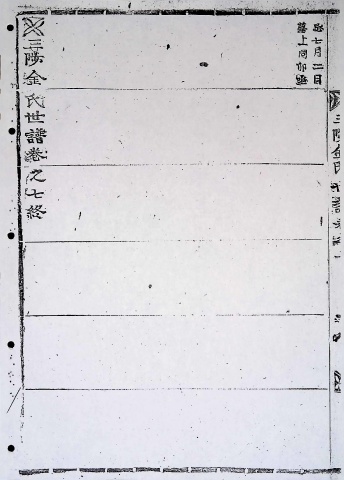 七月二日
墓上同郡
三陟金氏世譜卷之七終
三陟金氏